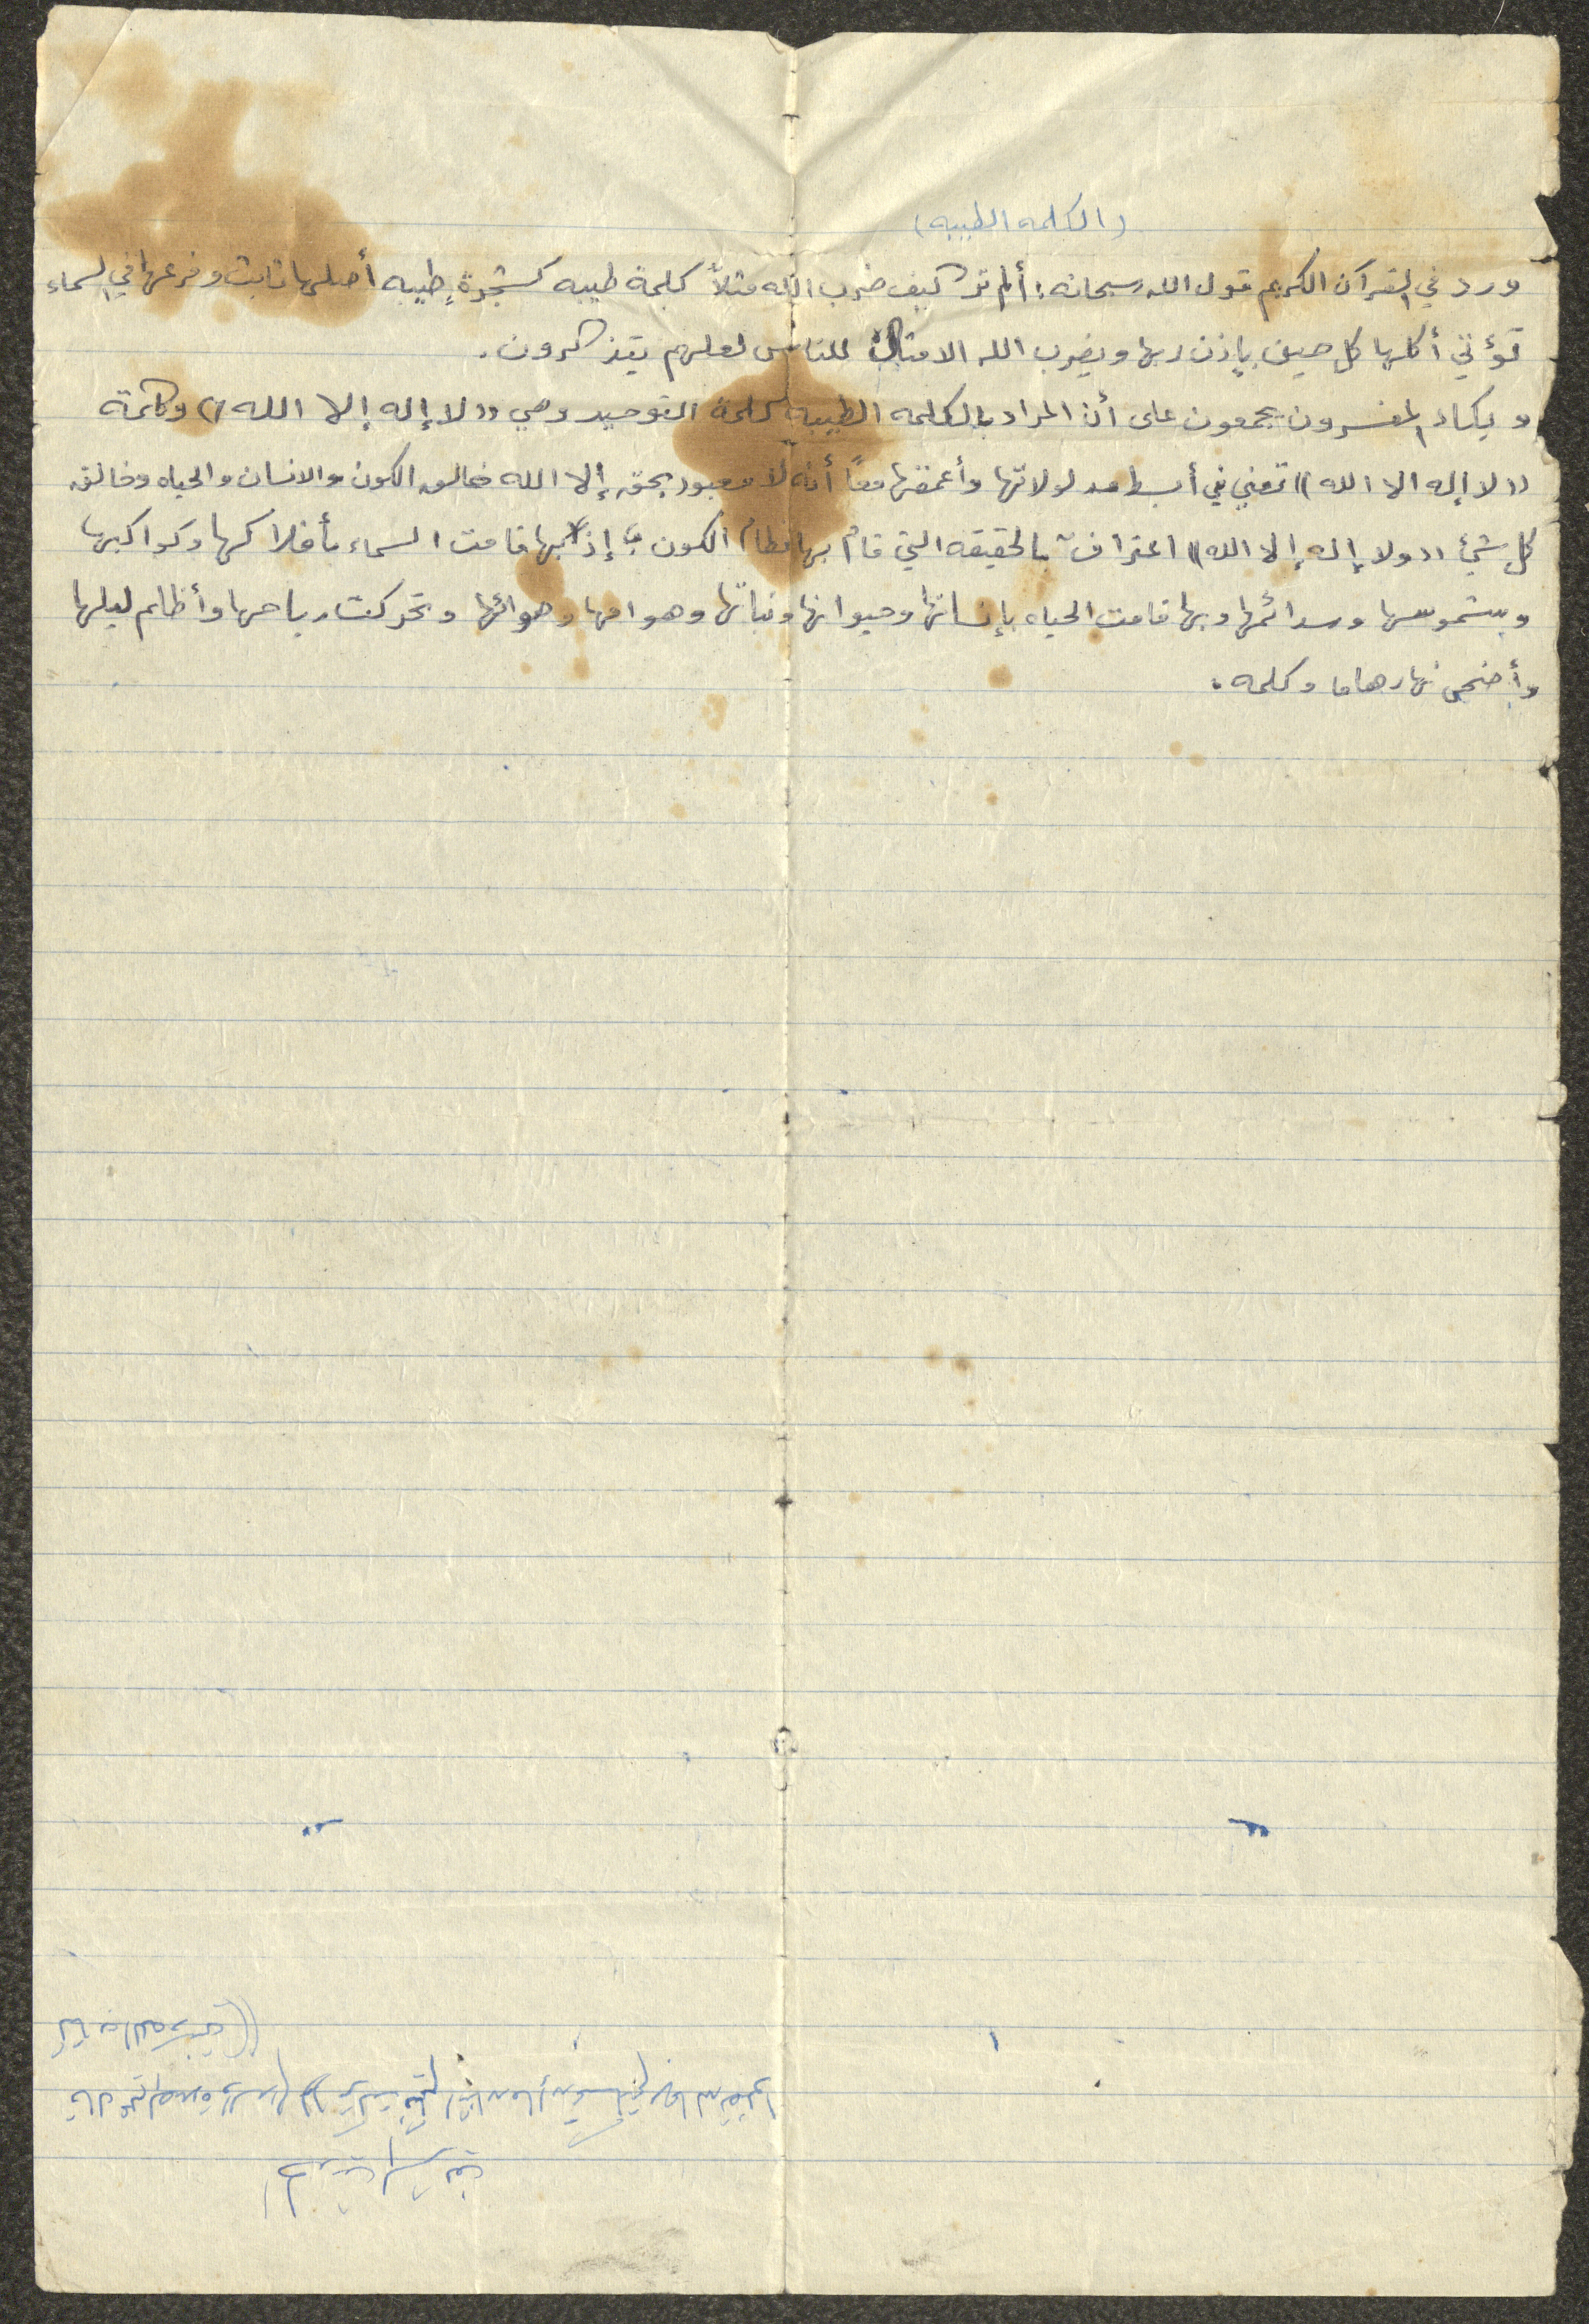 (الكلمه الطيبه)
ورد في القرآن الكريم قول الله سبحانه: ألم تر كيف ضرب الله مثلاً كلمة طيبه كشجرةٍ طيبه أصلها ثابت وفرعها في السماء
تؤتي أكلها كل حين بإذن ربها ويضرب الله الامثال للناس لعلهم يتذكرون.
ويكاد المفسرون يجمعون على أن المراد بالكلمه الطيبه كلمة التوحيد وهي ((لا إله إلا الله)) وكلمة
((لا إله الا الله)) تعني في أبسط مدلولاتها وأعمقها معاً أنه لا معبود بحق إلا الله خالق الكون والانسان والحياه وخالق
كل شيئ ((ولا إله إلا الله)) اعتراف بالحقيقه التي قام بها نظام الكون إذ بها قامت السماء بأفلاكها وكواكبها
وبشموسها وسدائمها وبها قامت الحياه بإنسانها وحيوانها ونباتها وهوامها وهوائها وتحركت رياحها وأظلم ليلها
وأضحى نهارها وكلمه.
الحديث الشريف